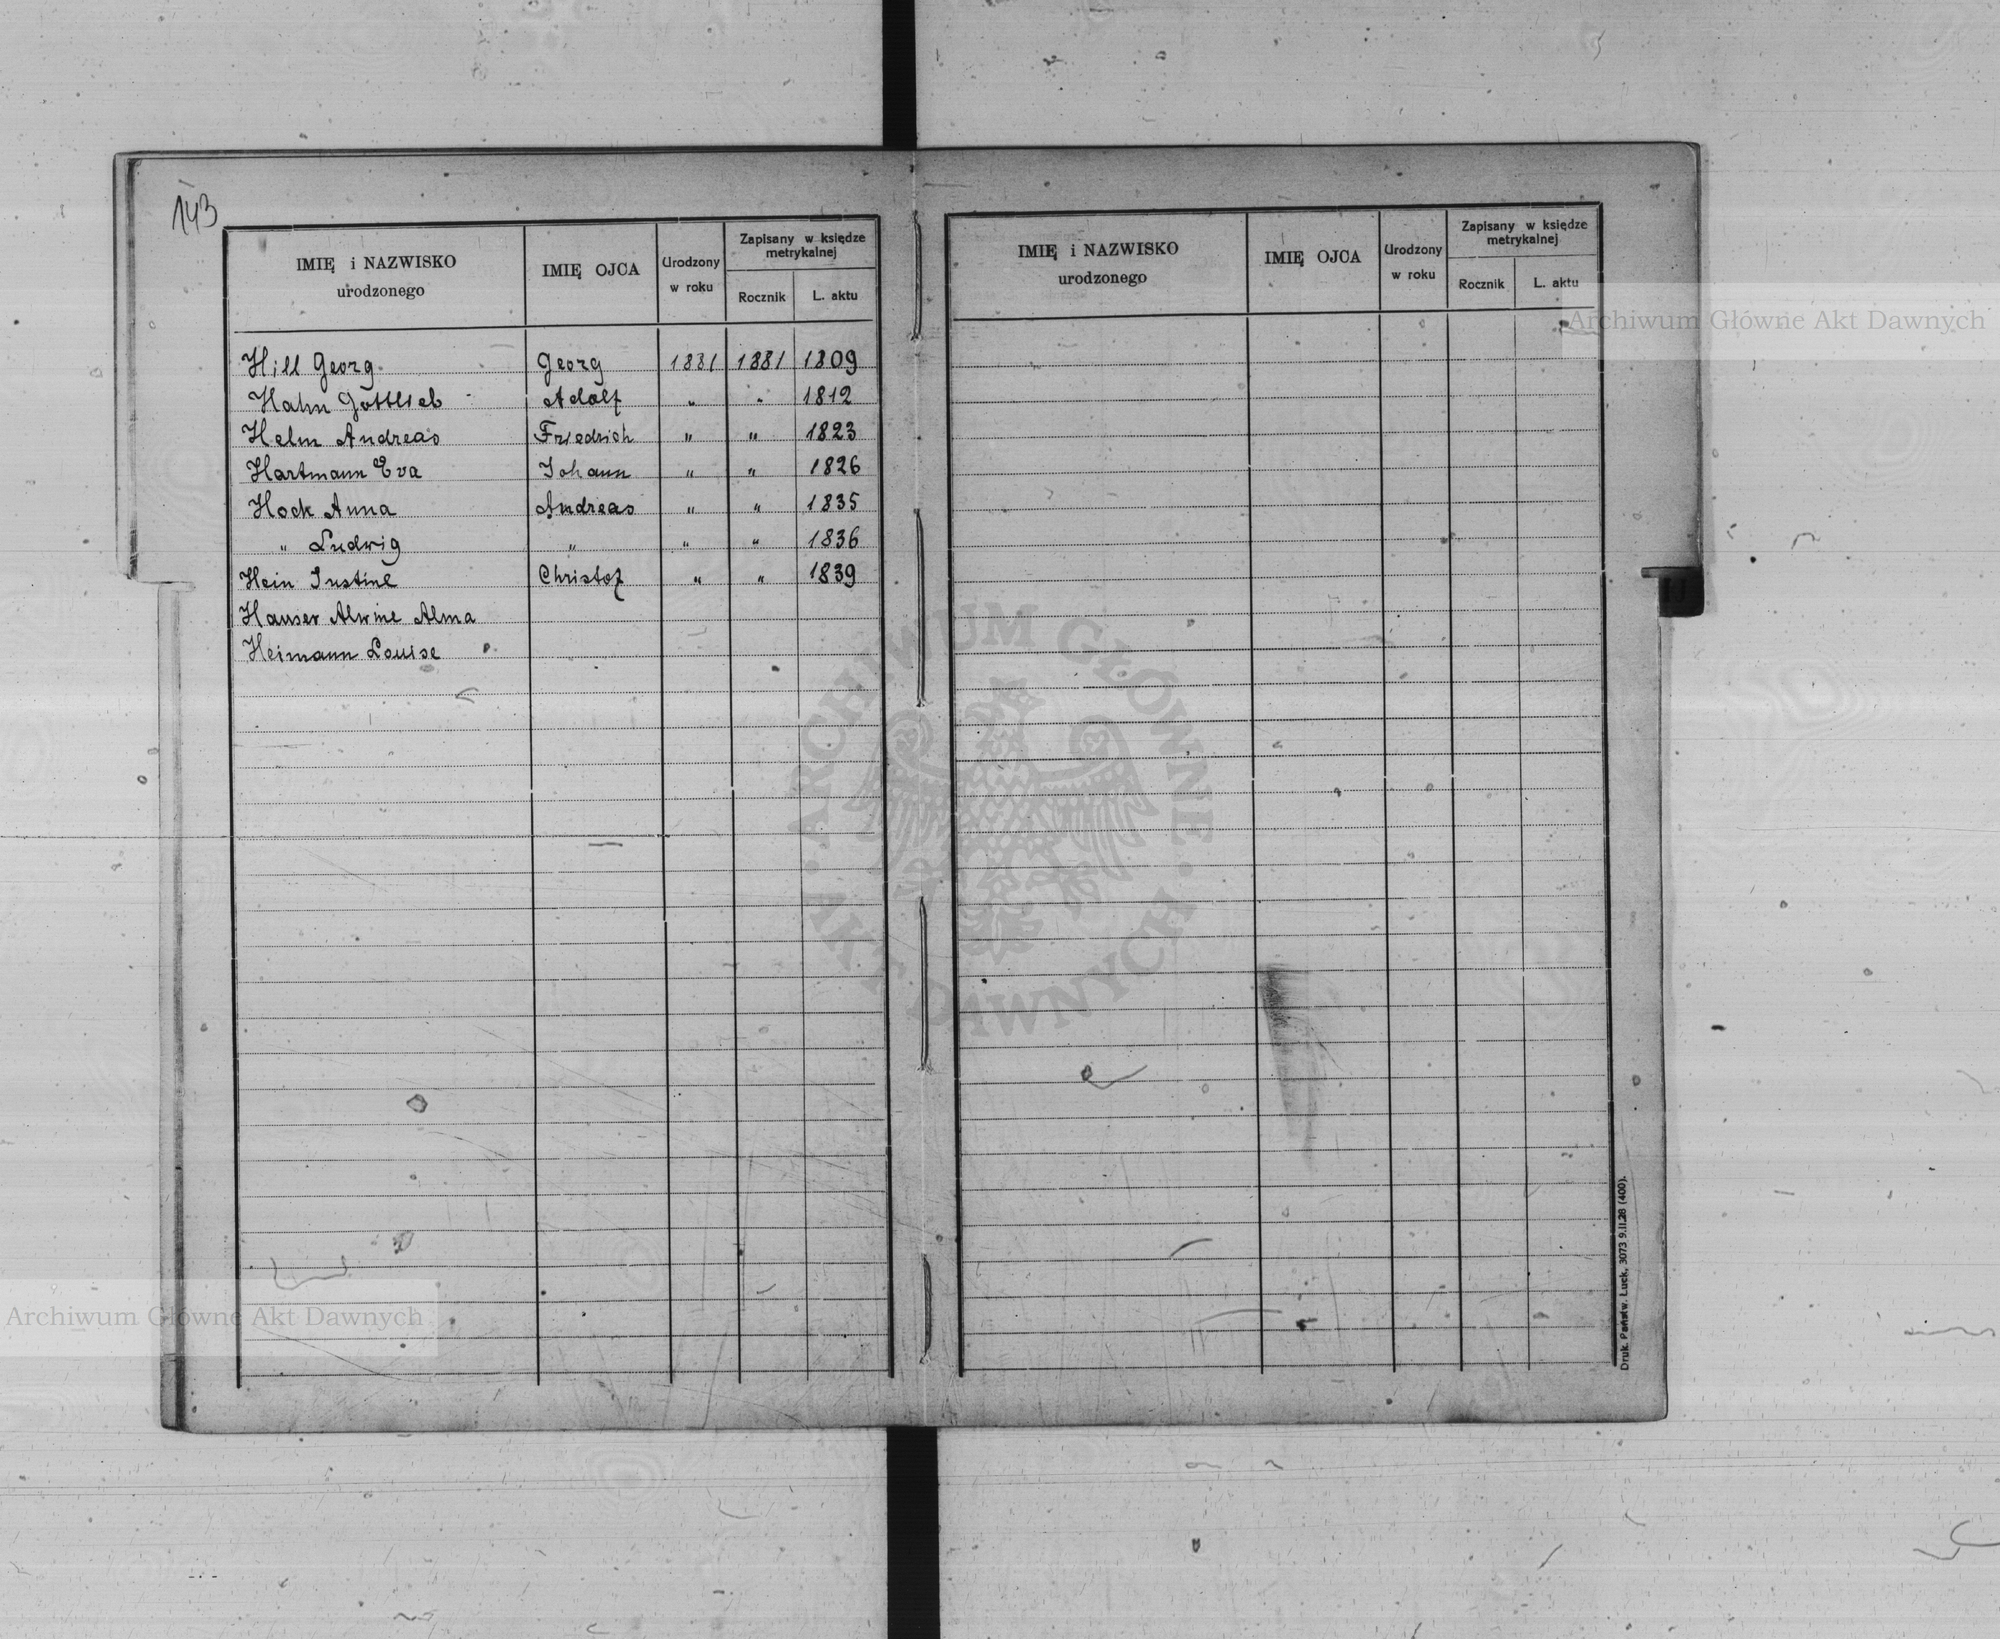 143
IMIĘ i NAZWISKO urodzonego IMIĘ OJCA Urodzony w roku Zapisany w księdze metrykalnej Rocznik L. aktu
Hill Georg Georg 1881 1881 1809
Hahn Gottlieb Adolf " " 1812
Helm Andreas Friedrich " " 1823
Hartmann Eva Johann " " 1826
Hock Anna Andreas " " 1835
" Ludwig " " " 1836
Hein Justine Christof " " 1839
Hauser Alwine Alma
Heimann Louise
IMIĘ i NAZWISKO urodzonego IMIĘ OJCA Urodzony w roku Zapisany w księdze metrykalnej Rocznik L. aktu
Druk. Państw. Łuck, 3073 9.II.28 (400).
Archiwum Główne Akt Dawnych
ARCHIWUM GŁÓWNE · AKT DAWNYCH ·
Archiwum Główne Akt Dawnych